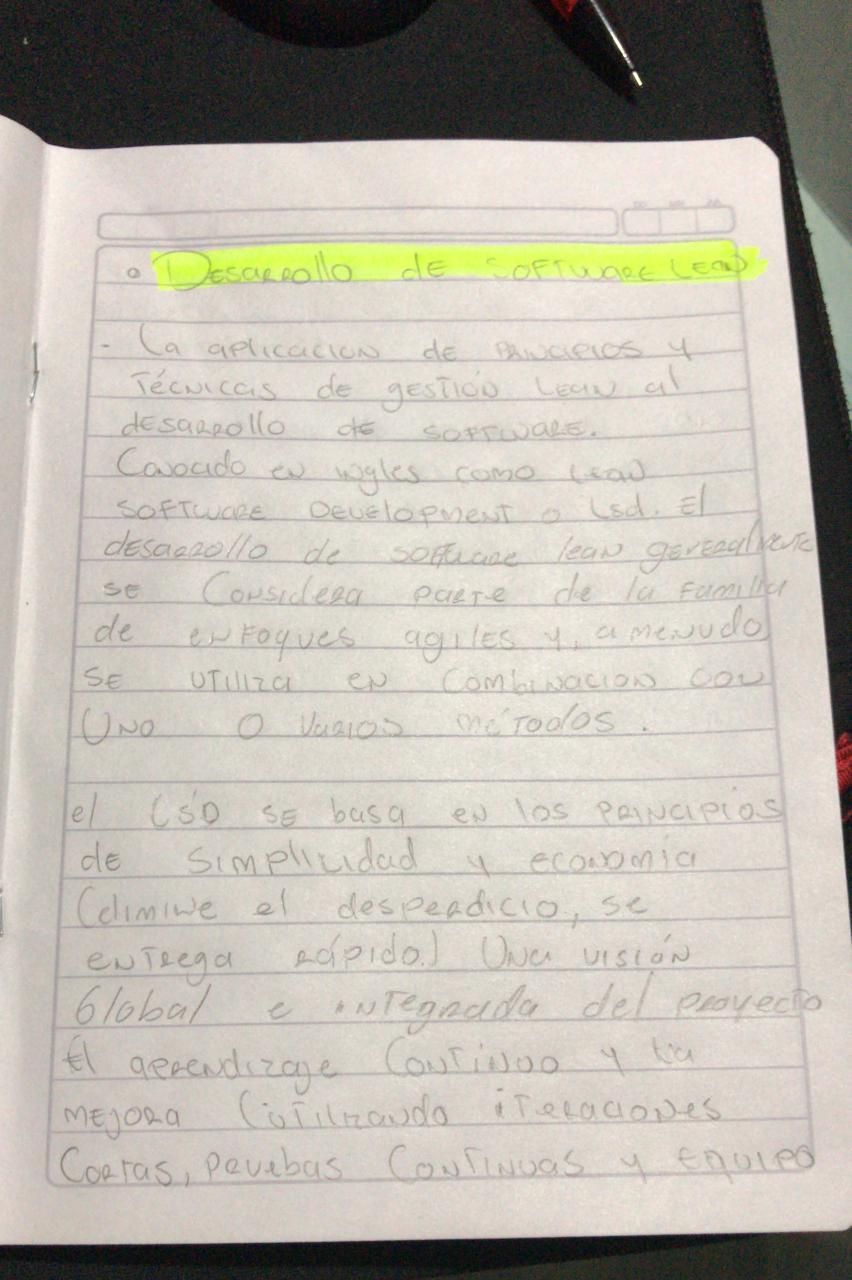 Desarrollo de Software Lean
- La aplicacion de principios y
Técnicas de gestión Lean al
desarrollo de software.
Conocido en ingles como Lean
Software Development o Lsd. El
desarrollo de software lean generalmente
se Considera parte de la Familia
de enfoques agiles y, a menudo
se utiliza en combinacion con
Uno o varios métodos.
el LSD se basa en los principios
de simplicidad y economia
(elimine el desperdicio, se
entrega rápido.) Una visión
Global e integrada del proyecto
El aprendizaje Continuo y la
mejora (utilizando iteraciones
Cortas, pruebas Continuas y equipo